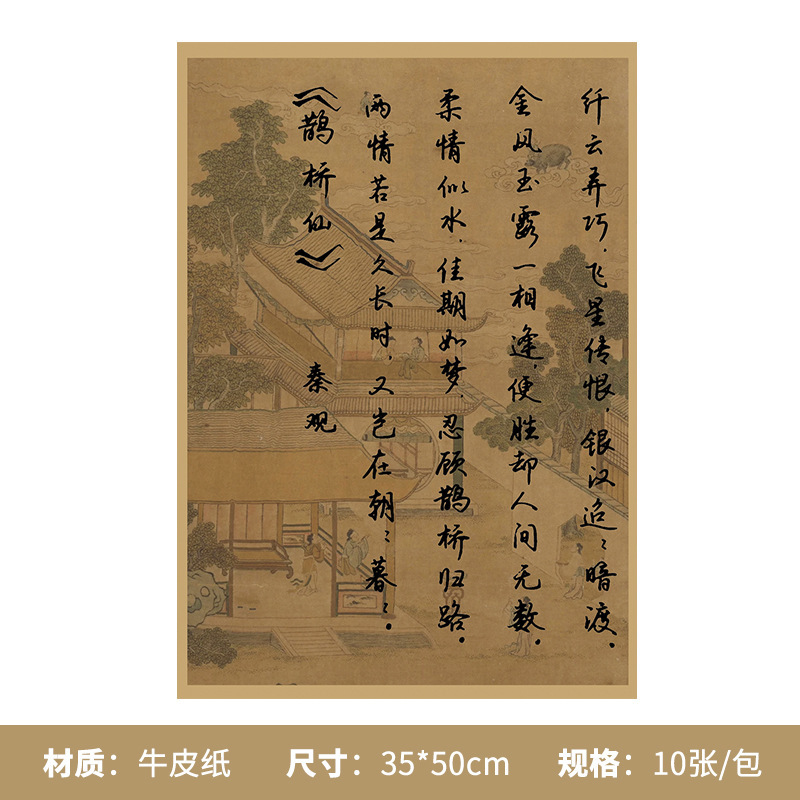 纤云弄巧，飞星传恨，银汉迢〻暗渡。
金风玉露一相逢，便胜却人间无数。
柔情似水，佳期如梦，忍顾鹊桥归路。
两情若是久长时，又岂在朝〻暮〻。
《鹊桥仙》 秦观
材质：牛皮纸 尺寸：35*50cm 规格：10张/包